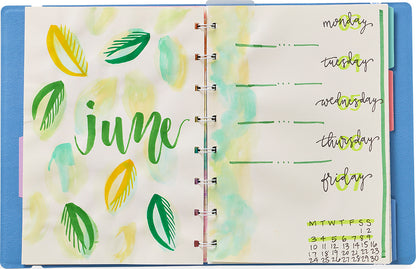 june
monday
tuesday
wednesday
thursday
friday
M T W T F S S
1 2
3 4 5 6 7 8 9
10 11 12 13 14 15 16
17 18 19 20 21 22 23
24 25 26 27 28 29 30